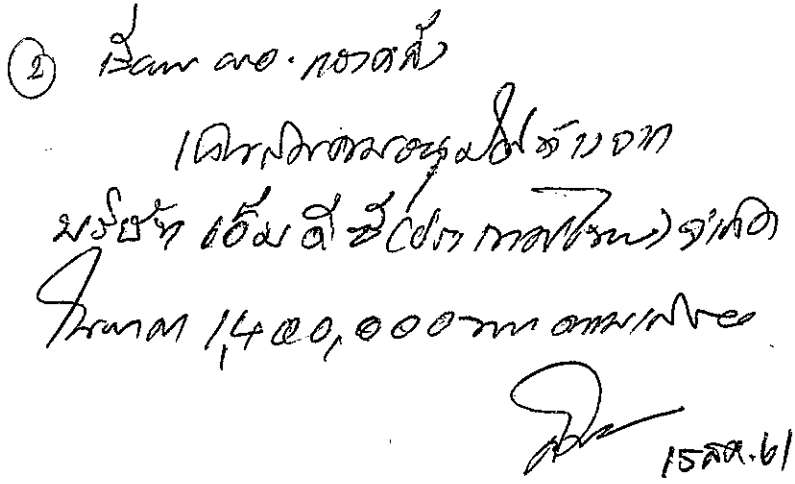 ② เรียน ผอ.กองคลัง
เห็นสมควรอนุมัติจ้างจาก
บริษัท เอ็ม ดี ซี (ประเทศไทย) จำกัด
ในราคา 1,400,000 บาท ตามเสนอ
15 สค. 61